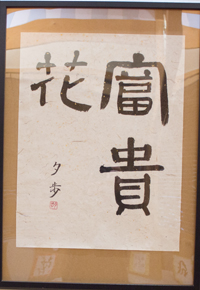 富貴
花
夕歩